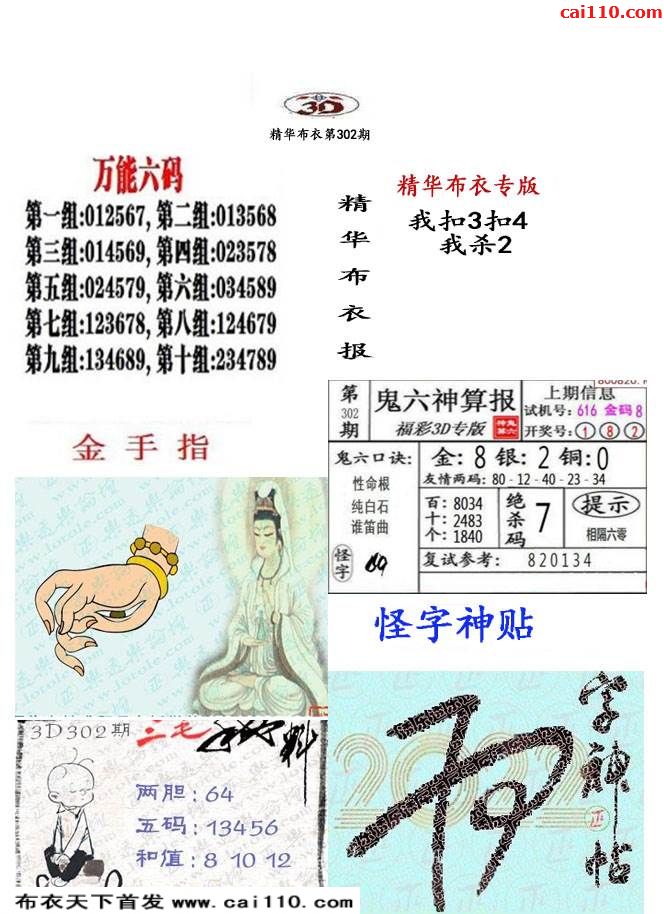 cai110.com
3D
精华布衣第302期
万能六码
第一组:012567, 第二组:013568
第三组:014569, 第四组:023578
第五组:024579, 第六组:034589
第七组:123678, 第八组:124679
第九组:134689, 第十组:234789
精华布衣报
精华布衣专版
我扣3扣4
我杀2
第302期
鬼六神算报
福彩3D专版
上期信息
试机号: 616 金码 8
开奖号: 1 8 2
鬼六口诀:
性命根
纯白石
谁笛曲
怪字
金: 8 银: 2 铜: 0
友情两码: 80-12-40-23-34
百: 8034
十: 2483
个: 1840
绝杀码 7
提示
相隔六零
复试参考: 820134
金手指
怪字神贴
3D302期
三毛
料
两胆: 64
五码: 13456
和值: 8 10 12
2022
字神帖
布衣天下首发 www.cai110.com